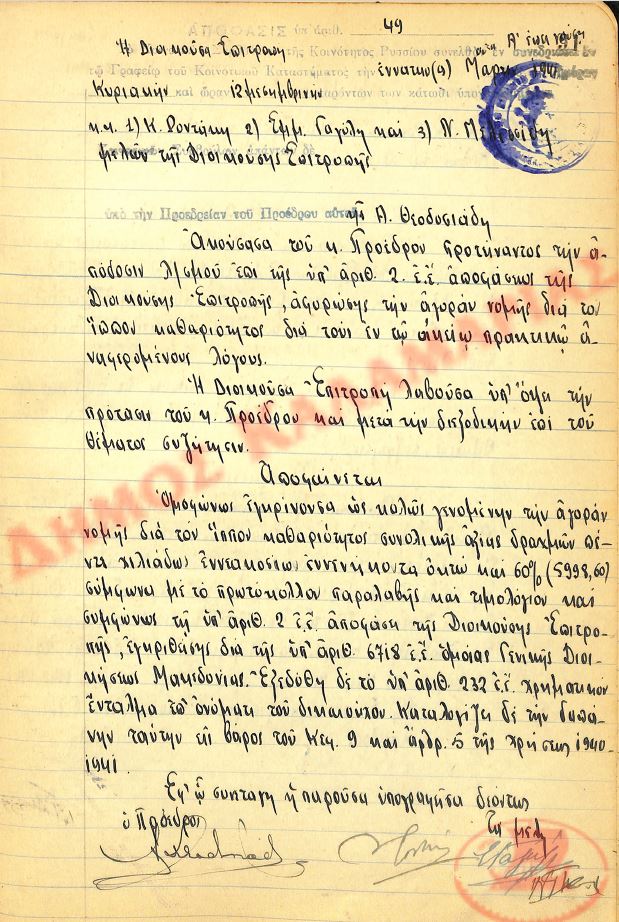 49
ΑΠΟΦΑΣΙΣ ὑπ' ἀριθ.
Ἡ Διοικοῦσα Ἐπιτροπὴ τῆς Κοινότητος Ρυσσίου συνελθ ἐν συνεδριάσει ἐν
τῷ Γραφείῳ τοῦ Κοινοτικοῦ Καταστήματος τὴν ἐννάτην (9) Μαρτ 1941
Κυριακὴν καὶ ὥραν 12 μεσημβρινὴν τῶν κάτωθι
κ.κ. 1) Κ. Ροντάκη 2) Ἐμμ. Γαγύλη καὶ 3) Ν.
μελῶν τῆς Διοικούσης Ἐπιτροπῆς
ὑπὸ τὴν Προεδρείαν τοῦ Προέδρου αὐτῆς Α. Θεοδοσιάδη
Ἀκούσασα τοῦ κ. Προέδρου προτείναντος τὴν ἀ-
πόδοσιν λ)σμοῦ ἐπὶ τῆς ὑπ' ἀριθ. 2 ἐ.ἔ. ἀποφάσεως τῆς
Διοικούσης Ἐπιτροπῆς, ἀφορώσης τὴν ἀγορὰν νομῆς διὰ τὸν
ἵππον καθαριότητος διὰ τοὺς ἐν τῷ οἰκείῳ πρακτικῷ ἀ-
ναφερομένους λόγους.
Ἡ Διοικοῦσα Ἐπιτροπὴ λαβοῦσα ὑπ' ὄψει τὴν
πρότασιν τοῦ κ. Προέδρου καὶ μετὰ τὴν διεξοδικὴν ἐπὶ τοῦ
θέματος συζήτησιν.
Ἀποφαίνεται
Ὁμοφώνως ἐγκρίνουσα ὡς καλῶς γενομένην τὴν ἀγορὰν
νομῆς διὰ τὸν ἵππον καθαριότητος συνολικῆς ἀξίας δραχμῶν πέ-
ντε χιλιάδων ἐννεακοσίων ἐννενήκοντα ὀκτὼ καὶ 60% (5998,60)
σύμφωνα μὲ τὸ πρωτόκολλον παραλαβῆς καὶ τιμολόγιον καὶ
συμφώνως τῇ ὑπ' ἀριθ. 2 ἐ.ἔ. ἀποφάσει τῆς Διοικούσης Ἐπιτρο-
πῆς, ἐγκριθείσης διὰ τῆς ὑπ' ἀριθ. 6718 ἐ.ἔ. ὁμοίας Γενικῆς Διοι-
κήσεως Μακεδονίας. Ἐξεδόθη δὲ τὸ ὑπ' ἀριθ. 232 ἐ.ἔ. χρηματικὸν
ἔνταλμα ἐπ' ὀνόματι τοῦ δικαιούχου. Καταλογίζει δὲ τὴν δαπά-
νην ταύτην εἰς βάρος τοῦ Κεφ. 9 καὶ ἄρθρ. 5 τῆς χρήσεως 1940-
1941.
Ἐφ' ᾧ συνετάγη ἡ παροῦσα ὑπογραφεῖσα δεόντως
ὁ Πρόεδρος Τὰ μέλη
ΔΗΜΟΣ ΚΑΛΑΜΑΡΙΑΣ